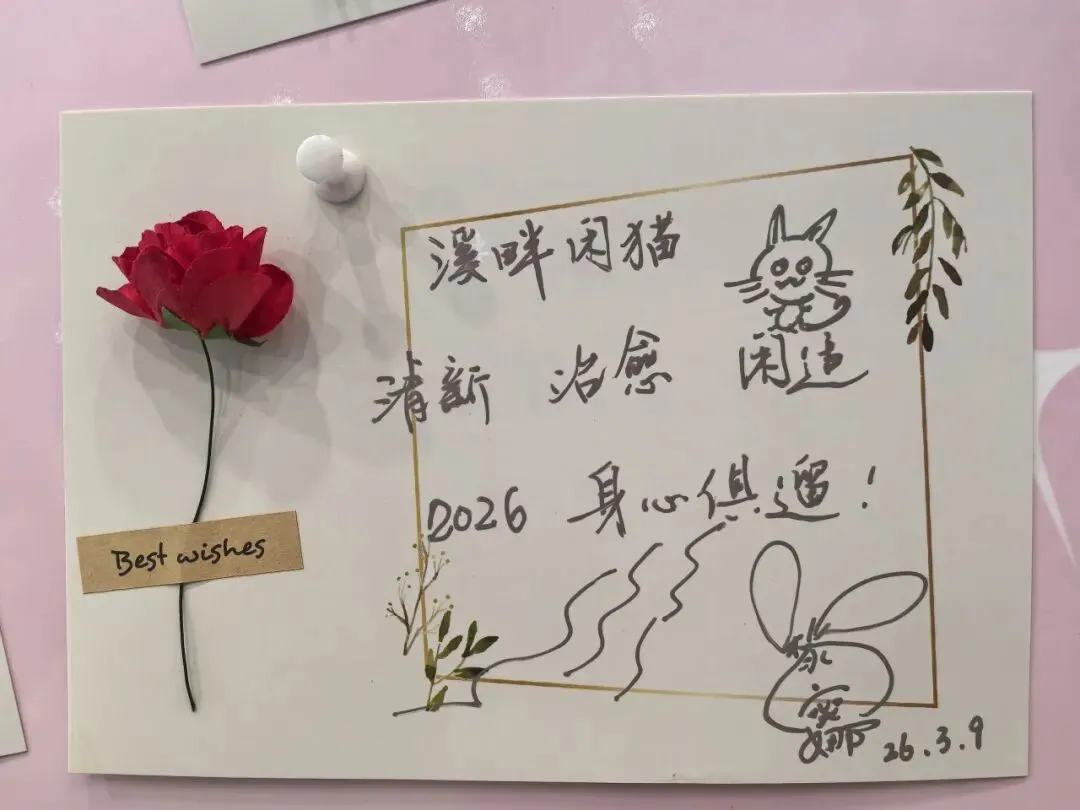 溪畔闲猫
清新 治愈 闲适
2026 身心俱遛!
Best wishes
26.3.9